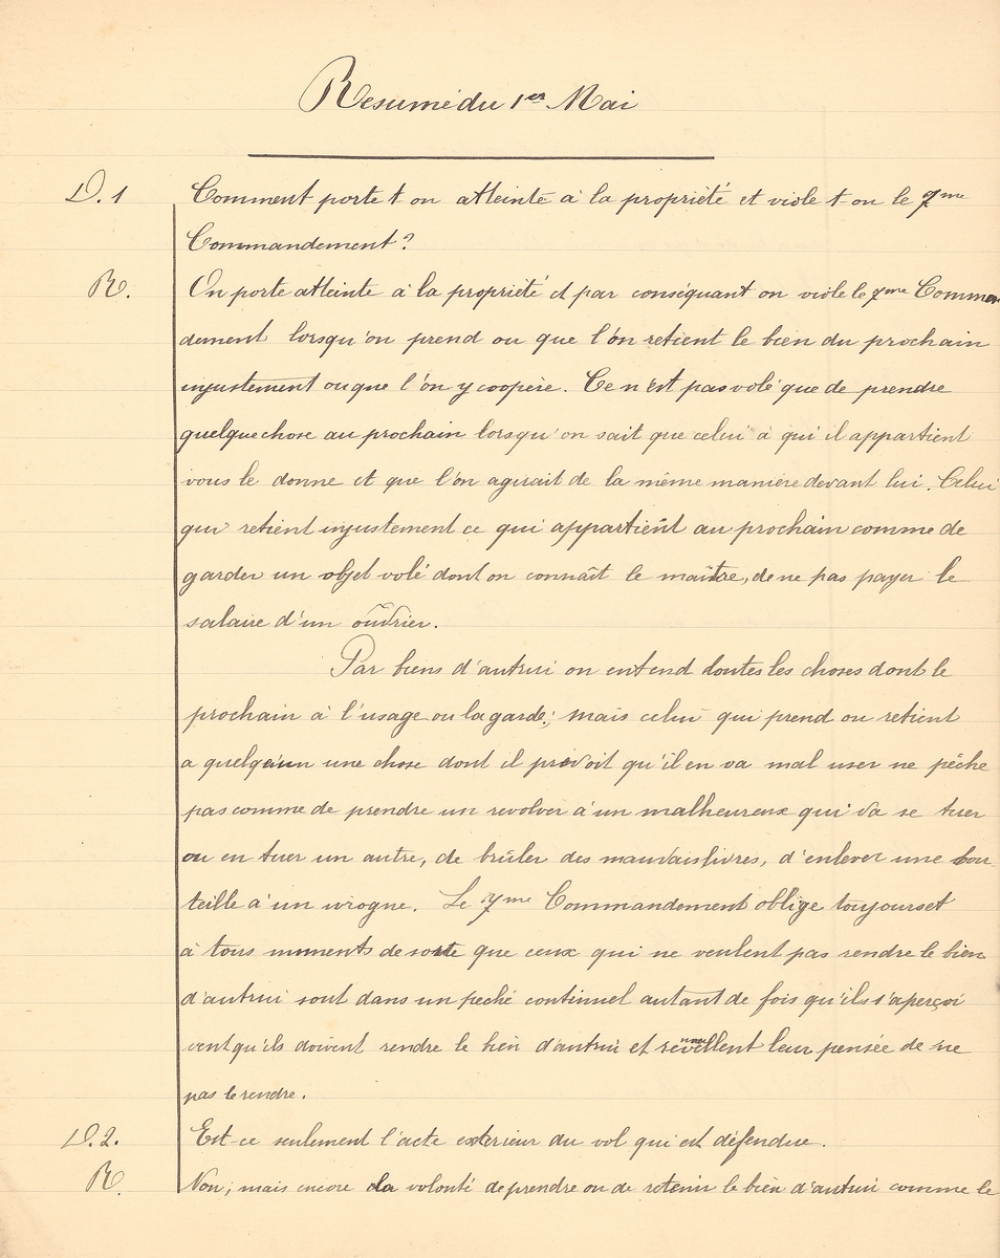 Resumé du 1er Mai
D. 1 Comment porte t on atteinte à la propriété et viole t-on le 7me
Commandement?
R. On porte atteinte à la propriété et par conséquant on viole le 7me Comman
dement lorsqu'on prend ou que l'on retient le bien du prochain
injustement ou que l'on y coopère. Ce n'est pas volé que de prendre
quelque chose au prochain lorsqu'on sait que celui à qui il appartient
vous le donne et que l'on agirait de la même manière devant lui. Celui
qui retient injustement ce qui appartient au prochain comme de
garder un objet volé dont on connaît le maître, de ne pas payer le
salaire d'un ouvrier.
Par biens d'autrui on entend toutes les choses dont le
prochain à l'usage ou la garde; mais celui qui prend ou retient
a quelqu'un une chose dont il prévoit qu'il en va mal user ne pêche
pas comme de prendre un revolver à un malheureux qui va se tuer
ou en tuer un autre, de brûler des mauvais livres, d'enlever une bou
teille à un ivrogne. Le 7me Commandement oblige toujours et
à tous moments de sorte que ceux qui ne veulent pas rendre le bien
d'autrui sont dans un peché continuel autant de fois qu'ils s'aperçoi
vent qu'ils doivent rendre le bien d'autrui et leur pensée de ne
pas le rendre.
D. 2. Est-ce seulement l'acte exterieur du vol qui est défendue.
R. Non, mais encore la volonté de prendre ou de retenir le bien d'autrui comme le